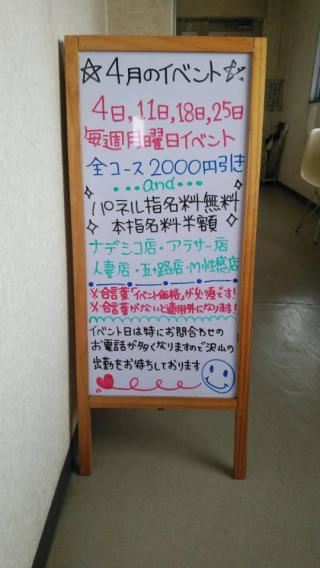 ☆4月のイベント☆
4日,11日,18日,25日
毎週月曜日イベント
全コース2000円引き
・・・and・・・
パネル指名料無料
本指名料半額
ナデシコ店・アラサー店
人妻店・五十路店・M性感店
※合言葉「イベント価格」が必須です!
※合言葉がないと適用外になります!
イベント日は特にお問合わせの
お電話が多くなりますので沢山の
出勤をお待ちしております